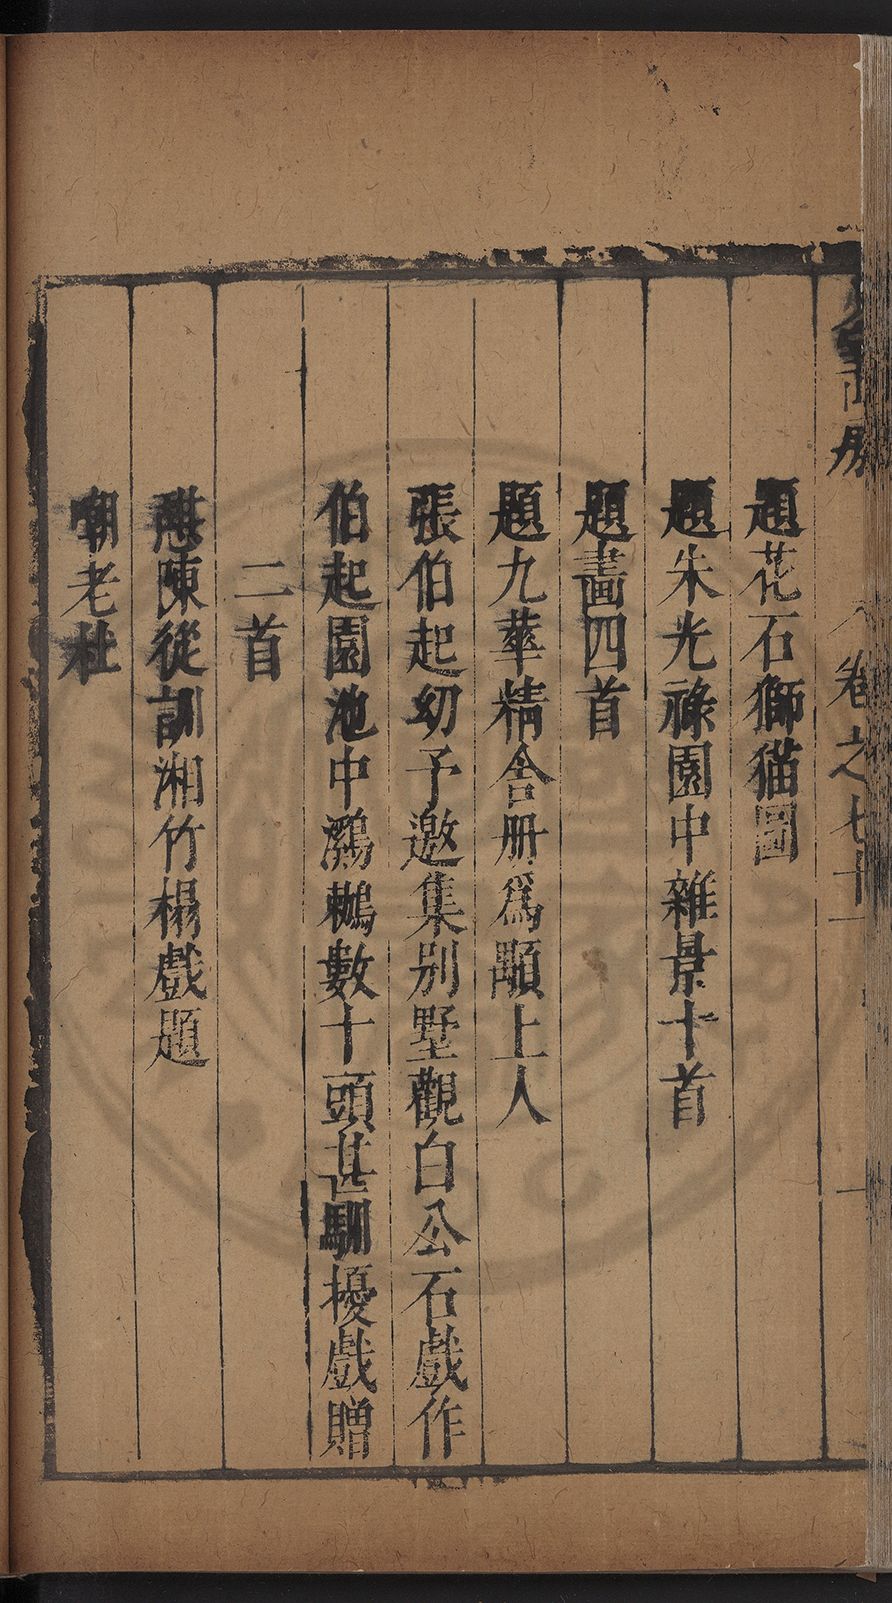 卷之七十一
題花石獅猫圖
題朱光祿園中雜景十首
題畫四首
題九華精舍册爲顒上人
張伯起幼予邀集別墅觀白公石戲作
伯起園池中鸂鶒數十頭甚馴擾戲贈
二首
憇陳從訓湘竹榻戲題
嘲老杜